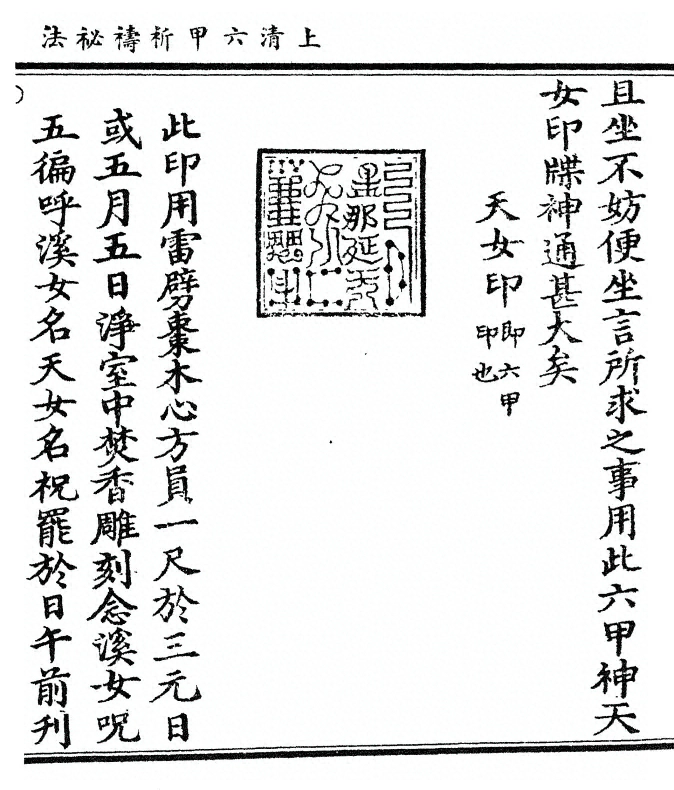 上清六甲祈禱祕法
且坐不妨便坐言所求之事用此六甲神天
女印牒神通甚大矣
天女印
即六甲
印也
此印用雷劈棗木心方員一尺於三元日
或五月五日淨室中焚香雕刻念溪女呪
五徧呼溪女名天女名祝罷於日午前刋